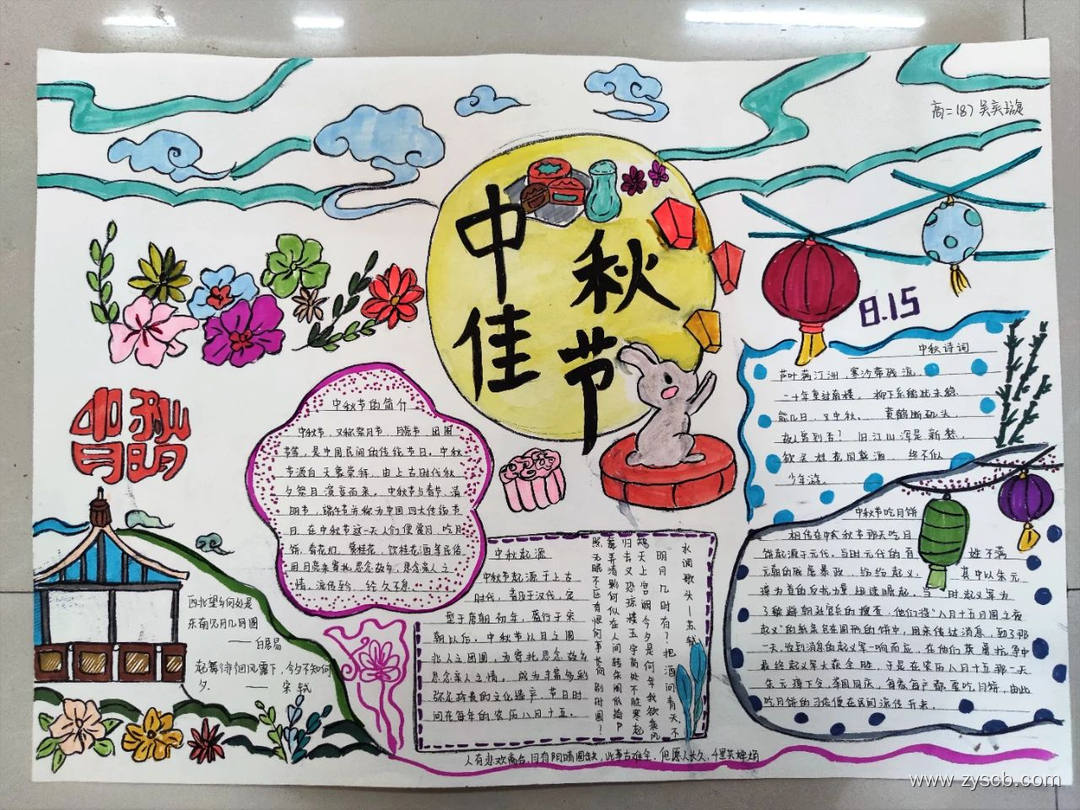 高二(8)
中秋佳节
8.15
中秋
中秋节的简介
中秋节，又称祭月节、月
节等，是中国民间的传统节日。中秋
节源自天象崇拜，由上古时代秋
夕祭月演变而来。中秋节与春节、清
明节、端午节并称为中国四大传统节
日。在中秋节这一天人们便赏月、吃月
饼、看花灯、赏桂花、饮桂花酒等民俗，
用月亮来寄托思念故乡，思念亲人之
情，流传至今，经久不息。
中秋诗词
芦叶满汀洲，寒沙带浅流。
二十年重过南楼。柳下系船犹未稳，
能几日，又中秋。黄鹤断矶头，
故人曾到否？旧江山浑是新愁。
欲买桂花同载酒，终不似，
少年游。
中秋节吃月饼
相传在中秋节那天吃月
饼起源于元代，当时元代的百姓不满
元朝的残暴政，纷纷起义。其中以朱元
璋为首的
一天，收到消息的起义军一响而应，
最终起义军大获全胜，于是在农历八月十五那一天
朱元璋下令举国同庆，每家每户都要吃月饼，由此
吃月饼的习俗便在民间流传开来。
中秋起源
中秋节起源于上古
时代，普及于汉代，定
型于唐朝初年，盛行于宋
朝以后。中秋节以月之圆
兆人之团圆，为寄托思念故乡
思念亲人之情，成为丰富多彩
弥足珍贵的文化遗产，节日时
间在每年的农历八月十五。
水调歌头——苏轼
明月几时有？把酒问青天。不
知天上宫阙，今夕是何年。我欲乘风
归去，又恐琼楼玉宇，高处不胜寒。起
舞弄清影，何似在人间。转朱阁，低绮户，
照无眠。不应有恨，何事长向别时圆？
人有悲欢离合，月有阴晴圆缺，此事古难全，但愿人长久，千里共婵娟
西北望乡何处是
东南见月几回圆
——白居易
起舞徘徊风露下，今夕不知何
夕。
www.zyscb.com